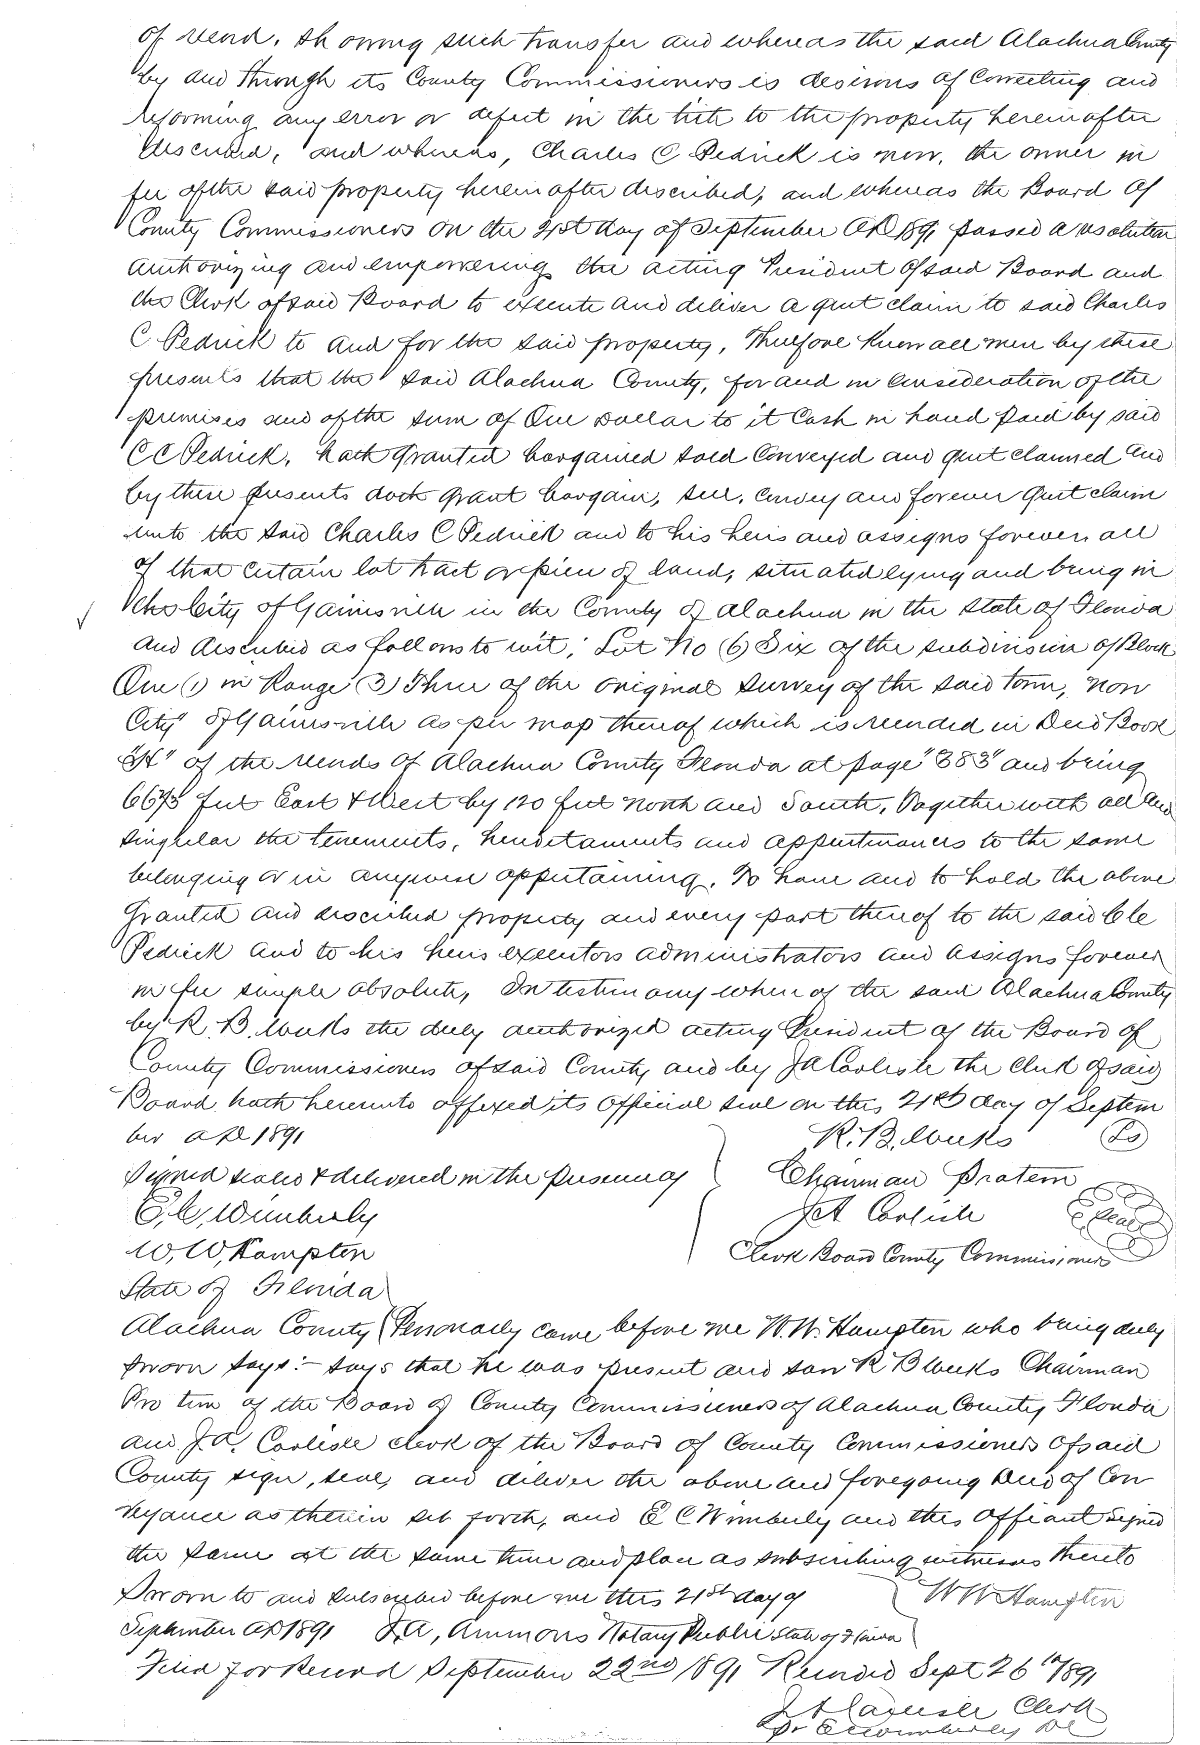 of record, showing such transfer and whereas the said Alachua County
by and through its County Commissioners is desirous of Correcting and
reforming any error or defect in the title to the property hereinafter
described, and whereas, Charles C Pedrick is now, the owner in
fee of the said property hereinafter described, and whereas the Board of
County Commissioners on the 21st day of September AD 1891 passed a resolution
authorizing and empowering the acting President of said Board and
the Clerk of said Board to execute and deliver a quit claim to said Charles
C Pedrick to and for the said property, Therefore Know all men by these
presents that the said Alachua County, for and in Consideration of the
premises and of the sum of One Dollar to it Cash in hand paid by said
C C Pedrick, hath granted bargained sold Conveyed and quit claimed and
by these presents doth grant bargain, sell, Convey and forever quit claim
unto the said Charles C Pedrick and to his heirs and assigns forever, all
of that certain lot tract or piece of land, situated lying and being in
the City of Gainesville in the County of Alachua in the State of Florida
and described as follows to wit; Lot No (6) Six of the subdivision of Block
One (1) in Range (3) Three of the original survey of the said town, now
City of Gainesville as per map thereof which is recorded in Deed Book
of the records of Alachua County Florida at page "383" and being
feet East & West by 120 feet North and South, Together with all and
singular the tenements, hereditaments and appurtenances to the same
belonging or in anywise appertaining. To have and to hold the above
granted and described property and every part thereof to the said C C
Pedrick and to his heirs executors administrators and assigns forever
in fee simple absolute, In testimony where of the said Alachua County
by R. B. Weeks the duly authorized acting President of the Board of
County Commissioners of said County and by J A Carlisle the Clerk of said
Board hath hereunto affixed its official seal on this 21st day of Septem
ber AD 1891
R. B. Weeks (LS)
Signed sealed & delivered in the presence of
Chairman Protem
E. C. Wimberly
J A Carlisle
Seal
W. W. Hampton
Clerk Board County Commissioners
State of Florida
Alachua County Personally came before me W. W. Hampton who being duly
sworn says:- says that he was present and saw R B Weeks Chairman
Pro tem of the Board of County Commissioners of Alachua County Florida
and J. A. Carlisle clerk of the Board of County Commissioners of said
County sign, seal, and deliver the above and foregoing Deed of Con
veyance as therein set forth, and E C Wimberly and this Affiant signed
the same at the same time and place as subscribing witnesses thereto
Sworn to and subscribed before me this 21st day of
W W Hampton
September AD 1891 J. A. Ammons Notary Public State of Florida
Filed for Record September 22nd 1891 Recorded Sept 26th 1891
J A Carlisle Clerk
Pr E C Wimberly DC